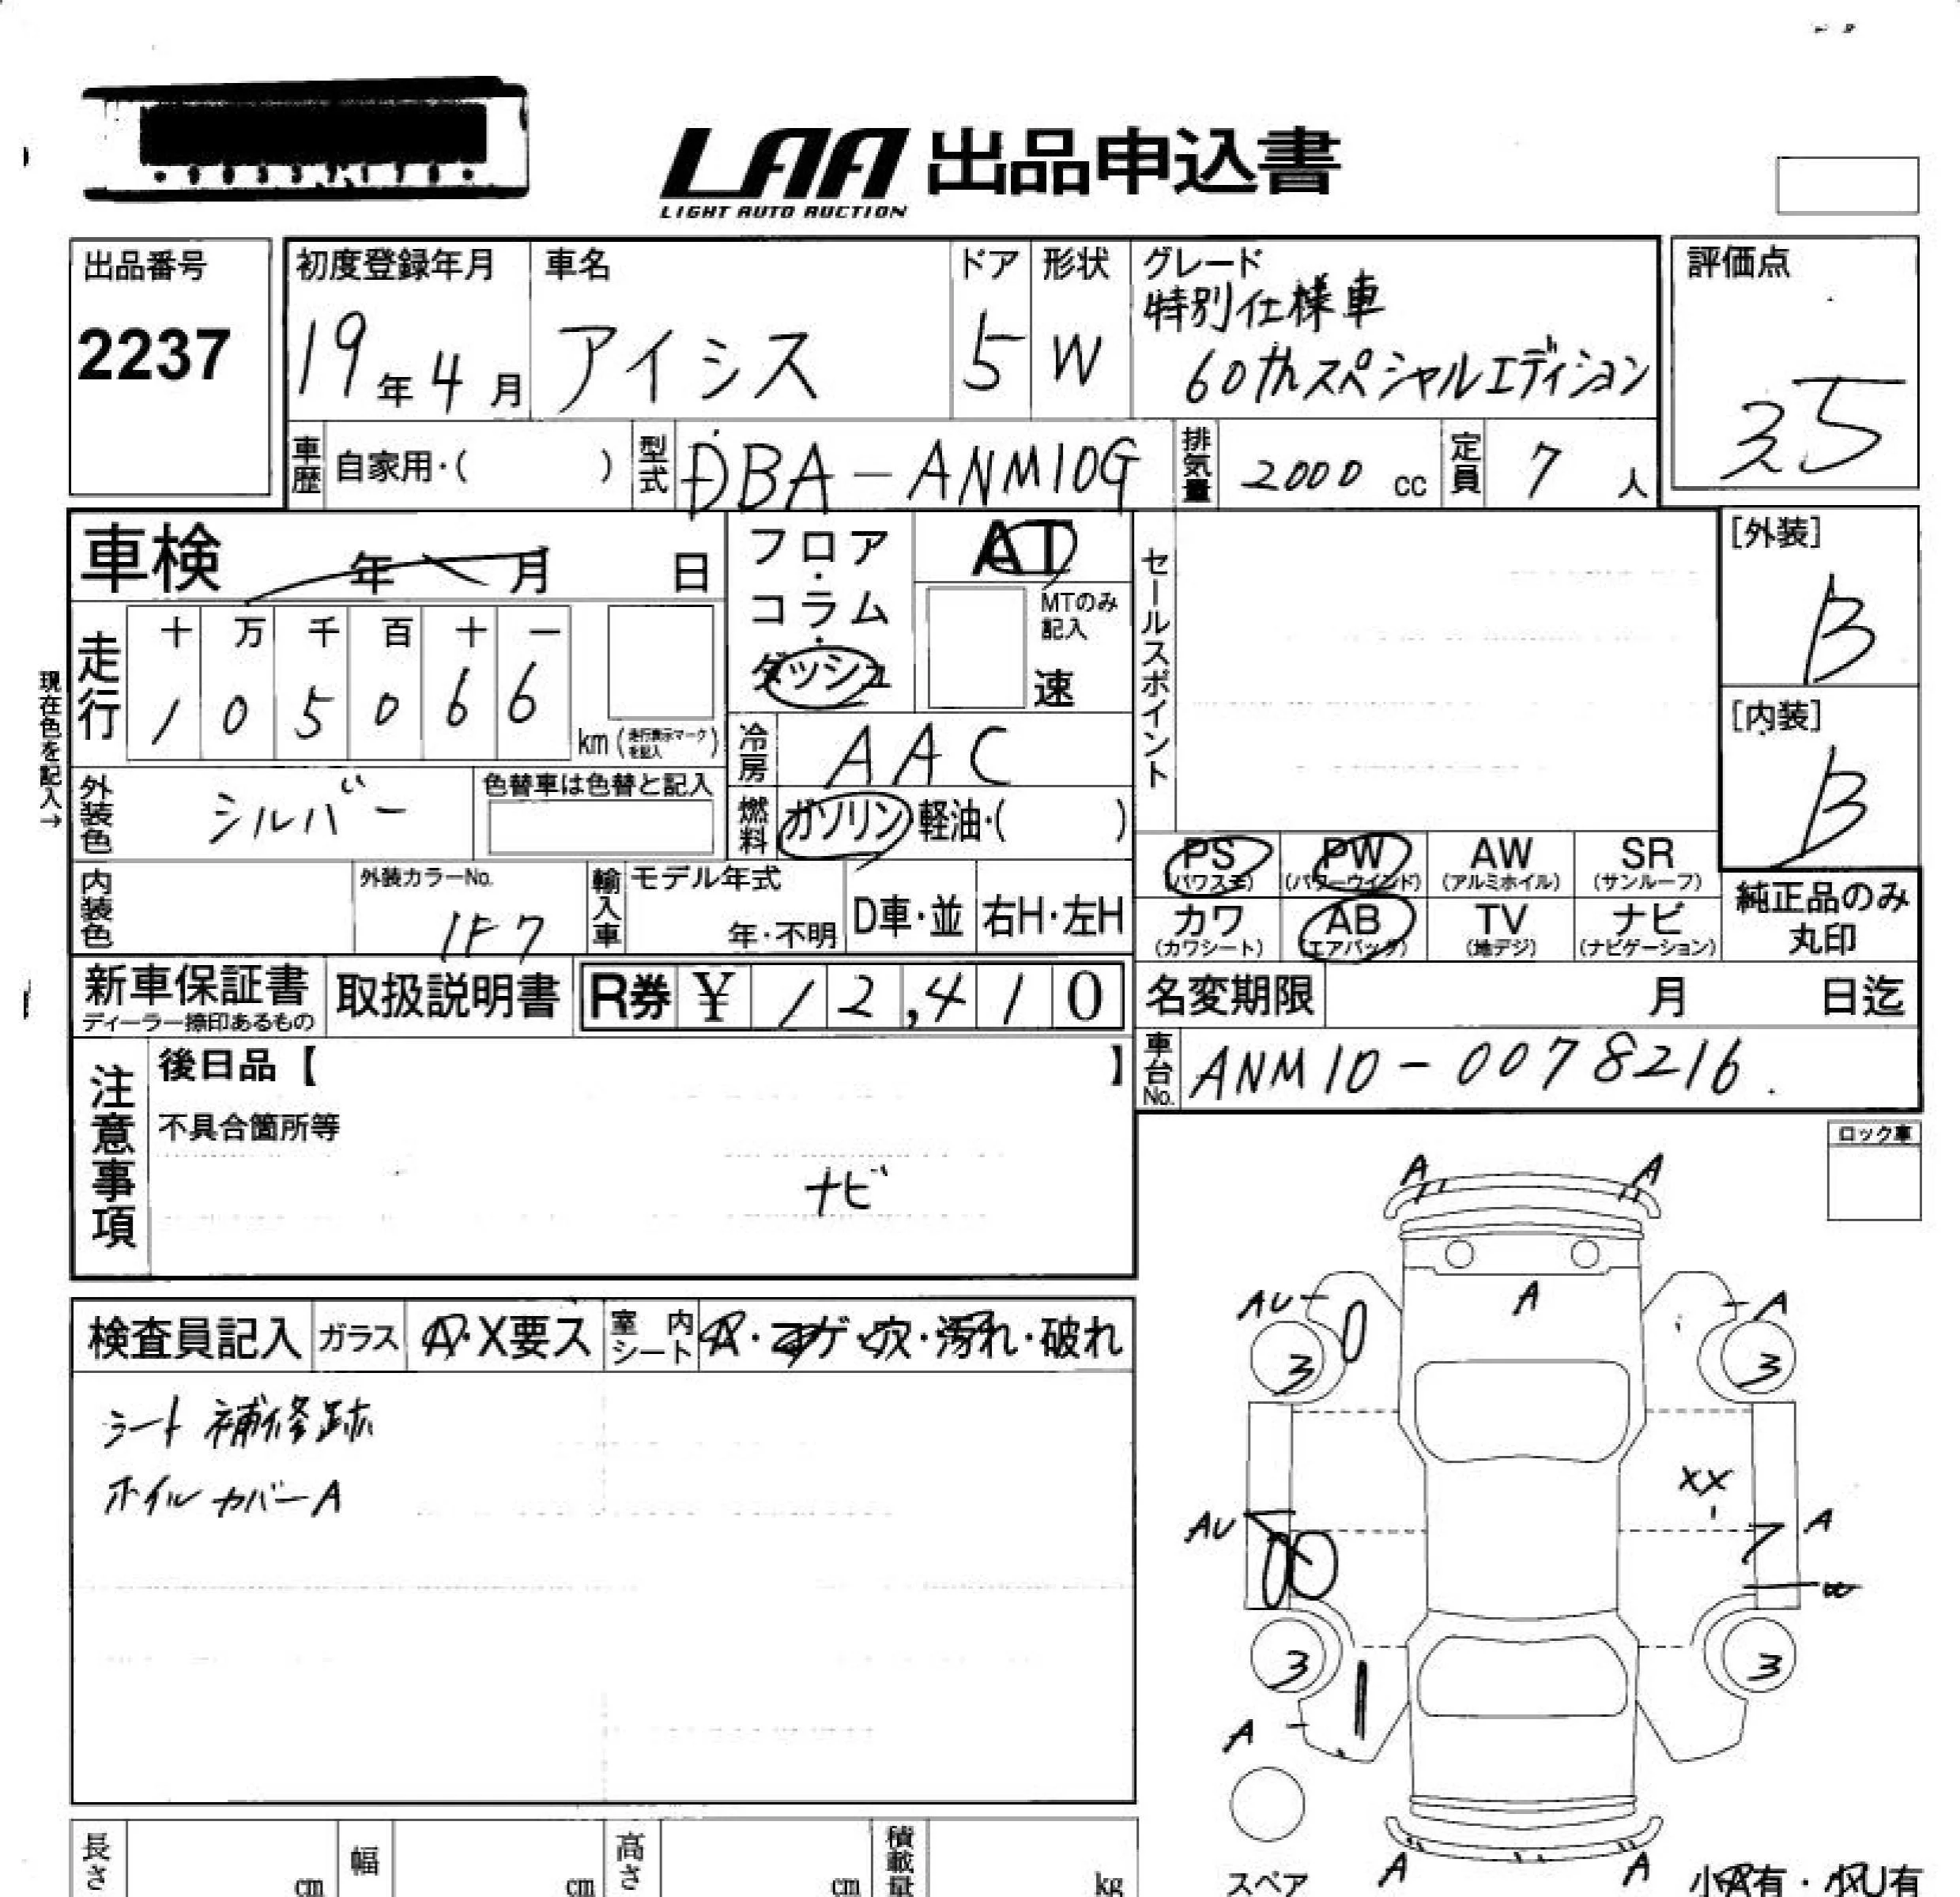 LAA 出品申込書
LIGHT AUTO AUCTION
出品番号
2237
初度登録年月
19年4月
車名
アイシス
ドア
5
形状
W
グレード
特別仕様車
60thスペシャルエディション
評価点
3.5
車歴 自家用・( )
型式 DBA-ANM10G
排気量 2000 cc
定員 7 人
車検 年 月 日
フロア・コラム・ダッシュ
AT
MTのみ記入
速
セールスポイント
[外装]
B
[内装]
B
現在色を記入→
走行
十 万 千 百 十 一
1 0 5 0 6 6
km (走行表示マークを記入)
冷房 AAC
外装色 シルバー
色替車は色替と記入
燃料 ガソリン 軽油・( )
PS (パワステ)
PW (パワーウインド)
AW (アルミホイル)
SR (サンルーフ)
内装色
外装カラーNo.
1F7
輸入車
モデル年式
年・不明
D車・並
右H・左H
カワ (カワシート)
AB (エアバッグ)
TV (地デジ)
ナビ (ナビゲーション)
純正品のみ
丸印
新車保証書
ディーラー捺印あるもの
取扱説明書
R券 ¥ 12,410
名変期限 月 日迄
車台No. ANM10-0078216.
注意事項
後日品【 】
不具合箇所等
ナビ
ロック車
検査員記入
ガラス A・X要ス
室内シート A・コゲ・穴・汚れ・破れ
シート補修跡
ホイルカバーA
A A
A
AU A
3 3
XX
AU A
3 3
A
A A
スペア
小A有・小U有
長さ cm
幅 cm
高さ cm
積載量 kg